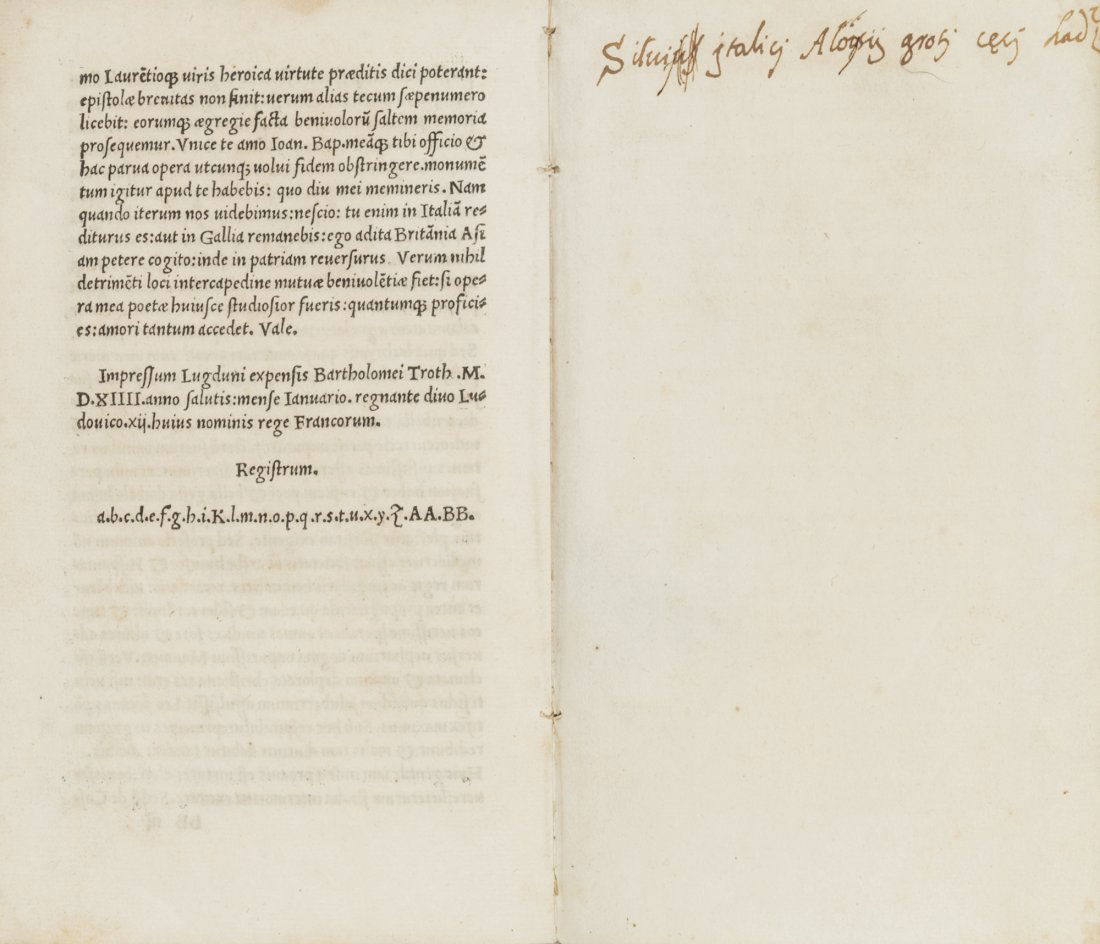 mo Laurētioq; viris heroica virtute præditis dici poterant:
epistolæ breuitas non sinit: verum alias tecum sæpenumero
licebit: eorumq; ægregie facta beniuolorū saltem memoria
prosequemur. Vnice te amo Ioan. Bap. meāq; tibi officio &
hac parua opera utcunq; uolui fidem obstringere. monumē
tum igitur apud te habebis: quo diu mei memineris. Nam
quando iterum nos uidebimus: nescio: tu enim in Italiā re-
diturus es: aut in Gallia remanebis: ego adita Britānia Asi
am petere cogito: inde in patriam reuersurus. Verum nihil
detrimēti loci intercapedine mutuæ beniuolētiæ fiet: si ope-
ra mea poetæ huiusce studiosior fueris: quantumq; profici-
es: amori tantum accedet. Vale.
Impressum Lugduni expensis Bartholomei Troth .M.
D.XIIII. anno salutis: mense Ianuario. regnante diuo Lu-
douico. xij. huius nominis rege Francorum.
Registrum.
a.b.c.d.e.f.g.h.i.K.l.m.n.o.p.q.r.s.t.u.x.y.ʒ.AA.BB.
jtalicj Aloysij grotj cęcj